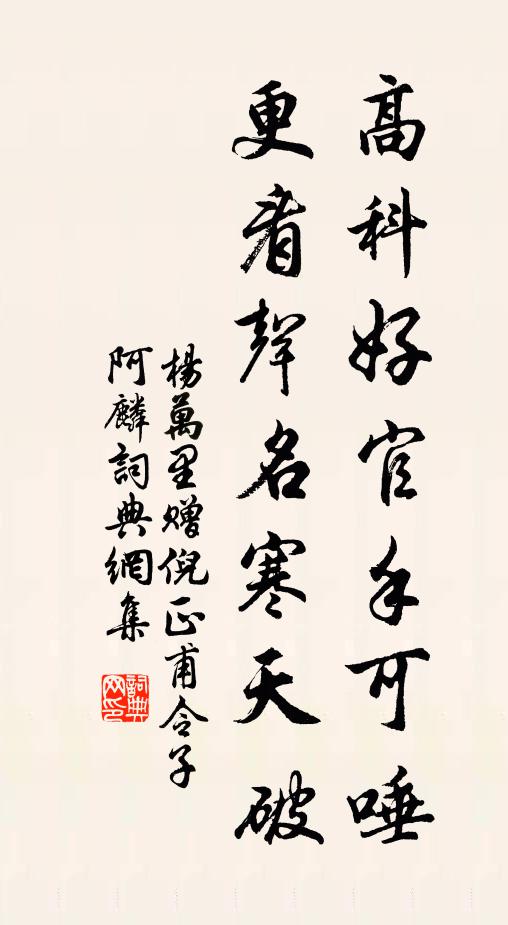 高科好官手可唾
更看聲名寒天破
楊萬里贈倪正甫令子
阿麟詞典網集
詞典
网印